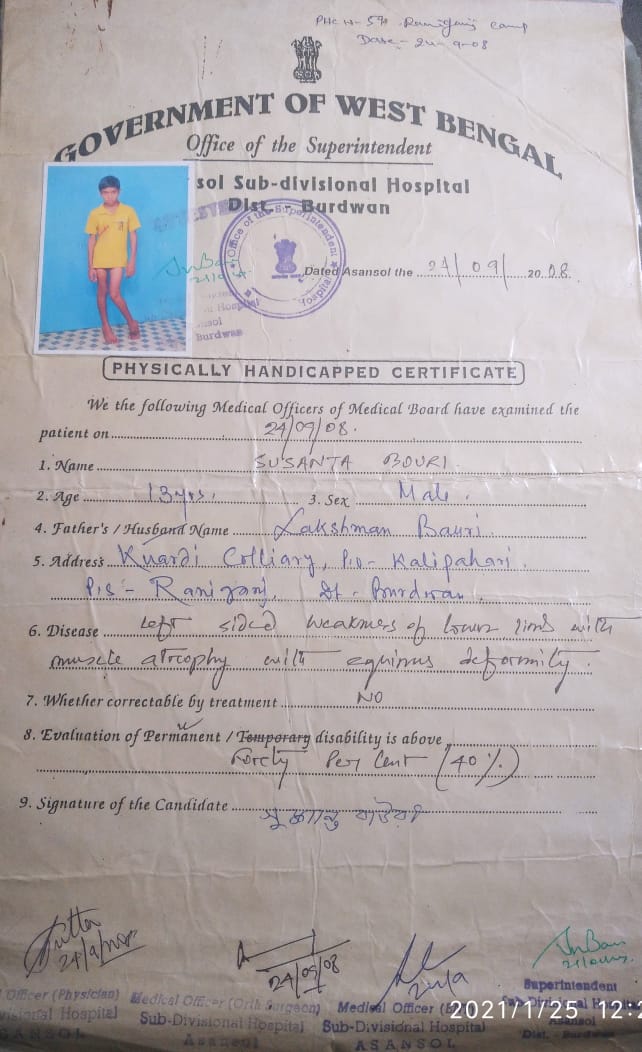 PHC H- 59 Raniganj camp
Date - 24-9-08
GOVERNMENT OF WEST BENGAL
Office of the Superintendent
sol Sub-divisional Hospital
Dist. - Burdwan
Office of the Superintendent
Hospital
Dated Asansol the 24/09/2008.
Hospital
nsol
Burdwan
PHYSICALLY HANDICAPPED CERTIFICATE
We the following Medical Officers of Medical Board have examined the
patient on 24/09/08.
1. Name SUSANTA BOURI.
2. Age 13 yrs. 3. Sex Male.
4. Father's / Husband Name Lakshman Bauri.
5. Address Kuardi Colliary, P.o- Kalipahari.
P.S - Raniganj. Dt - Burdwan.
6. Disease Left sided weakness of lower limb with
muscle atrophy with equinus deformity.
7. Whether correctable by treatment NO
8. Evaluation of Permanent / Temporary disability is above
Forty Per Cent (40%)
9. Signature of the Candidate সুশান্ত বাউরী
24/09/08
24/9
Officer (Physician) Medical Officer (Orth Surgeon) Medical Officer Superintendent
Hospital Sub-Divisional Hospital Sub-Divisional Hospital Sub-Divisional Hospital
ASANSOL Asansol ASANSOL Asansol
Dist. - Burdwan
2021/1/25 12:2